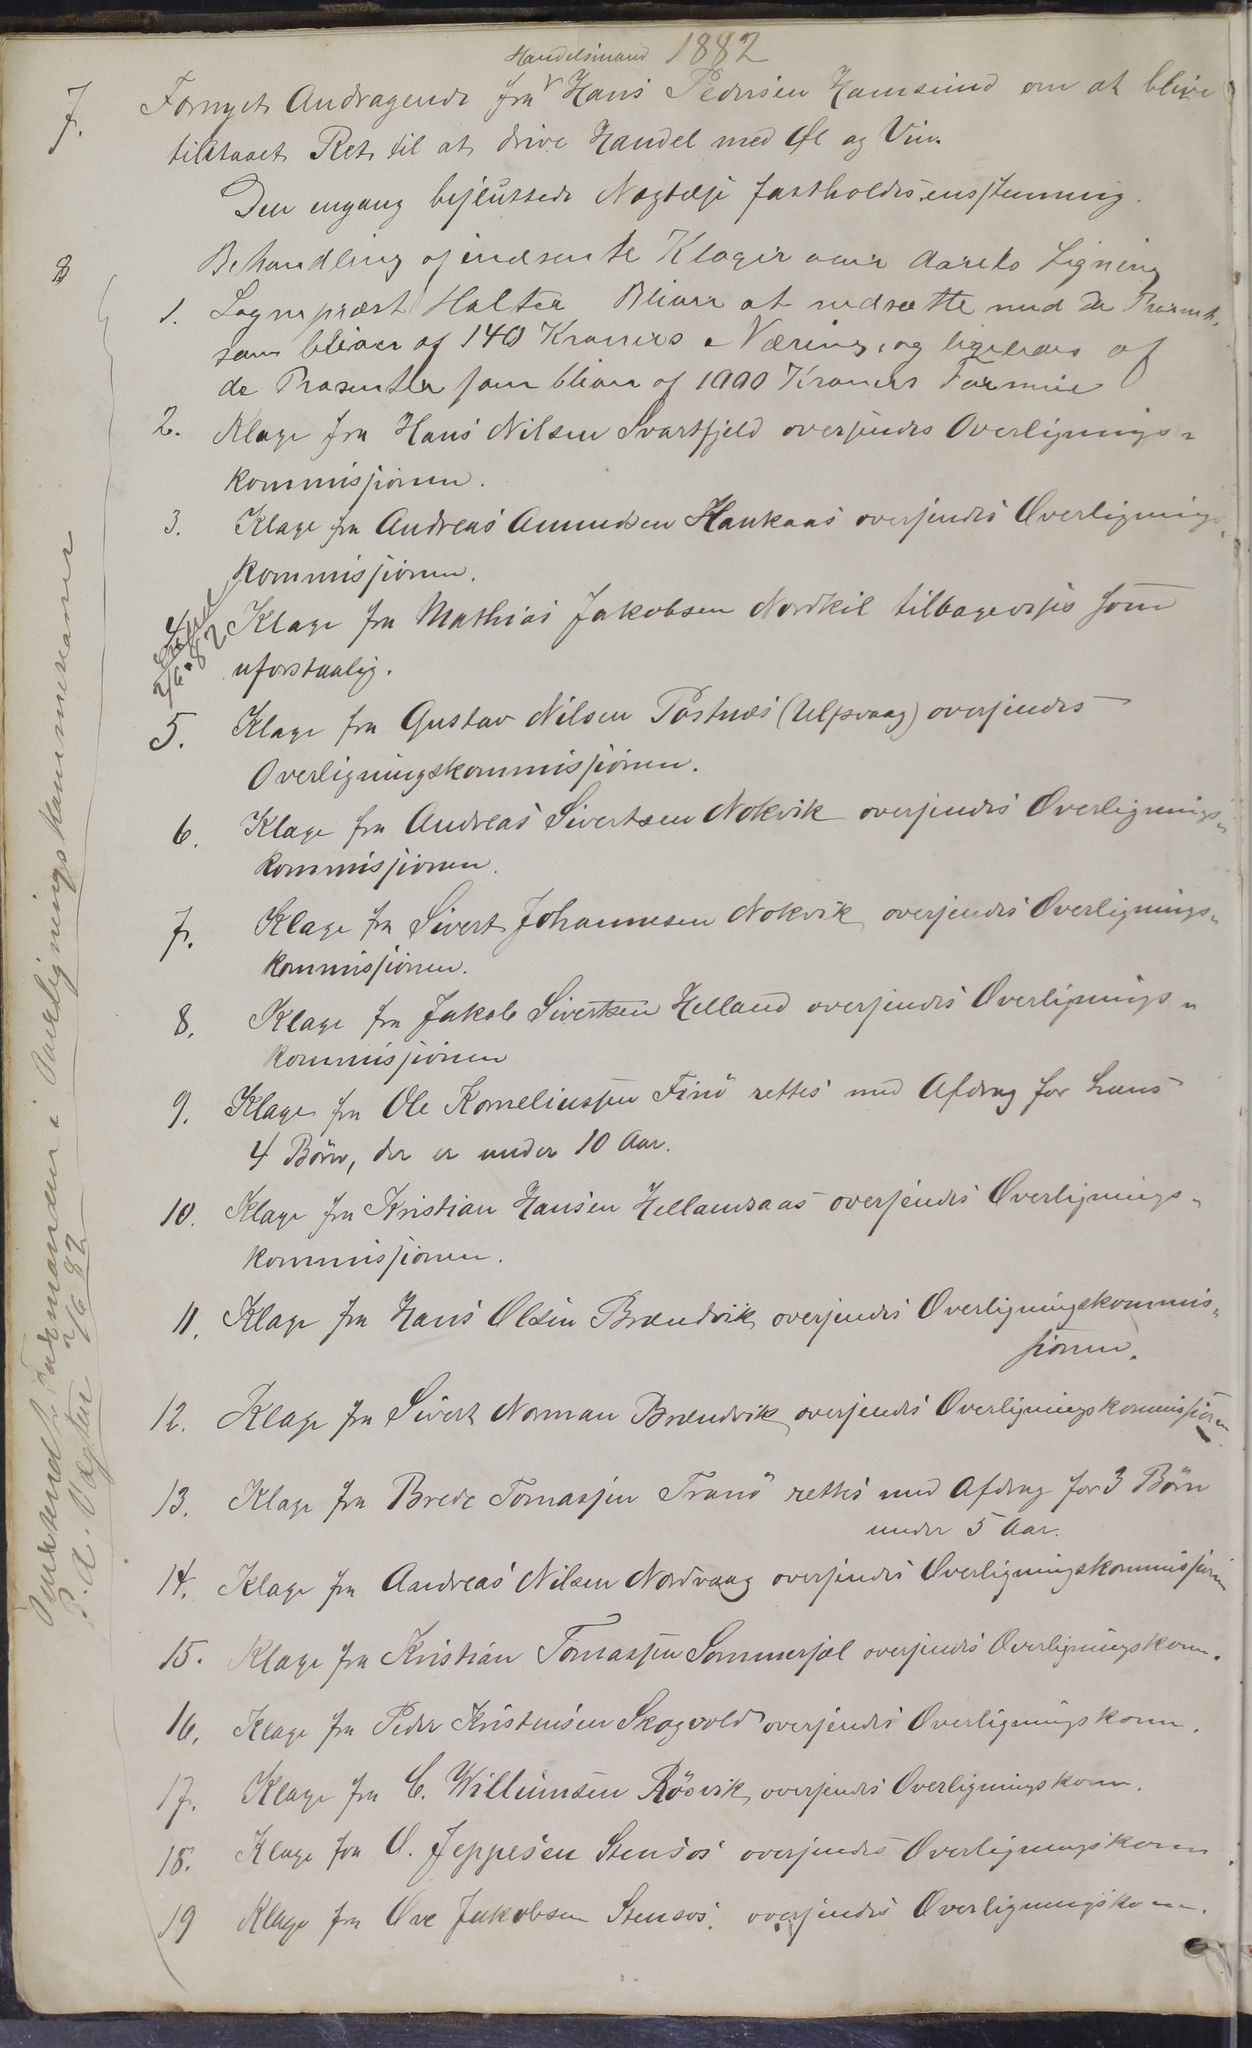 1882
Handelsmand
7. Fornyet Andragende fra Hans Pedersen Hamsund om at blive
tilstaaet Ret til at drive Handel med Øl og Vin.
Den engang besluttede Nægtelse fastholdes enstemmig.
8 Behandling af indsendte Klager over Aarets Ligning
1. Sognepræst Holter Bliver at nedsætte med de
som bliver af 140 Kroners Næring, og ligeledes af
de Prosenter som bliver af 1000 Kroners Formue
2. Klage fra Hans Nilsen Svartfjeld oversendes Overlignings-
kommissionen.
3. Klage fra Andreas Amundsen Haukaas oversendes Overlignings-
kommissionen.
4 Klage fra Mathias Jakobsen Nordkil tilbagevises som
uforstaalig.
2/6 82
5. Klage fra Gustav Nilsen Postnæs (Ulfsvaag) oversendes
Overligningskommissionen.
6. Klage fra Andreas Sivertsen Nokvik oversendes Overlignings-
kommissionen.
7. Klage fra Sivert Johannesen Nokvik oversendes Overlignings-
kommissionen.
8. Klage fra Jakob Sivertsen Helland oversendes Overlignings-
kommissionen
9. Klage fra Ole Korneliussen Finö rettes med Afdrag for hans
4 Börn, der er under 10 Aar.
10. Klage fra Kristian Hansen Hellandsaas oversendes Overlignings-
kommissionen.
11. Klage fra Hans Olsen Brændvik oversendes Overligningskommis-
sionen.
12. Klage fra Sivert Norman Brændvik oversendes Overligningskommissionen
13. Klage fra Brede Tomassen Tranö rettes med Afdrag for 3 Börn
under 5 Aar.
14. Klage fra Andreas Nilsen Nordvaag oversendes Overligningskommissionen
15. Klage fra Kristian Tomassen Sommersæl oversendes Overligningskom.
16. Klage fra Peder Kristensen Skogvold oversendes Overligningskom.
17. Klage fra C. Willumsen Rösvik oversendes Overligningskom.
18. Klage fra O. Jeppesen Stensös oversendes Overligningskom.
19 Klage fra Ove Jakobsen Stensös. oversendes Overligningskom.
Formanden i Overligningskommissionen
P. A. 2/6 82